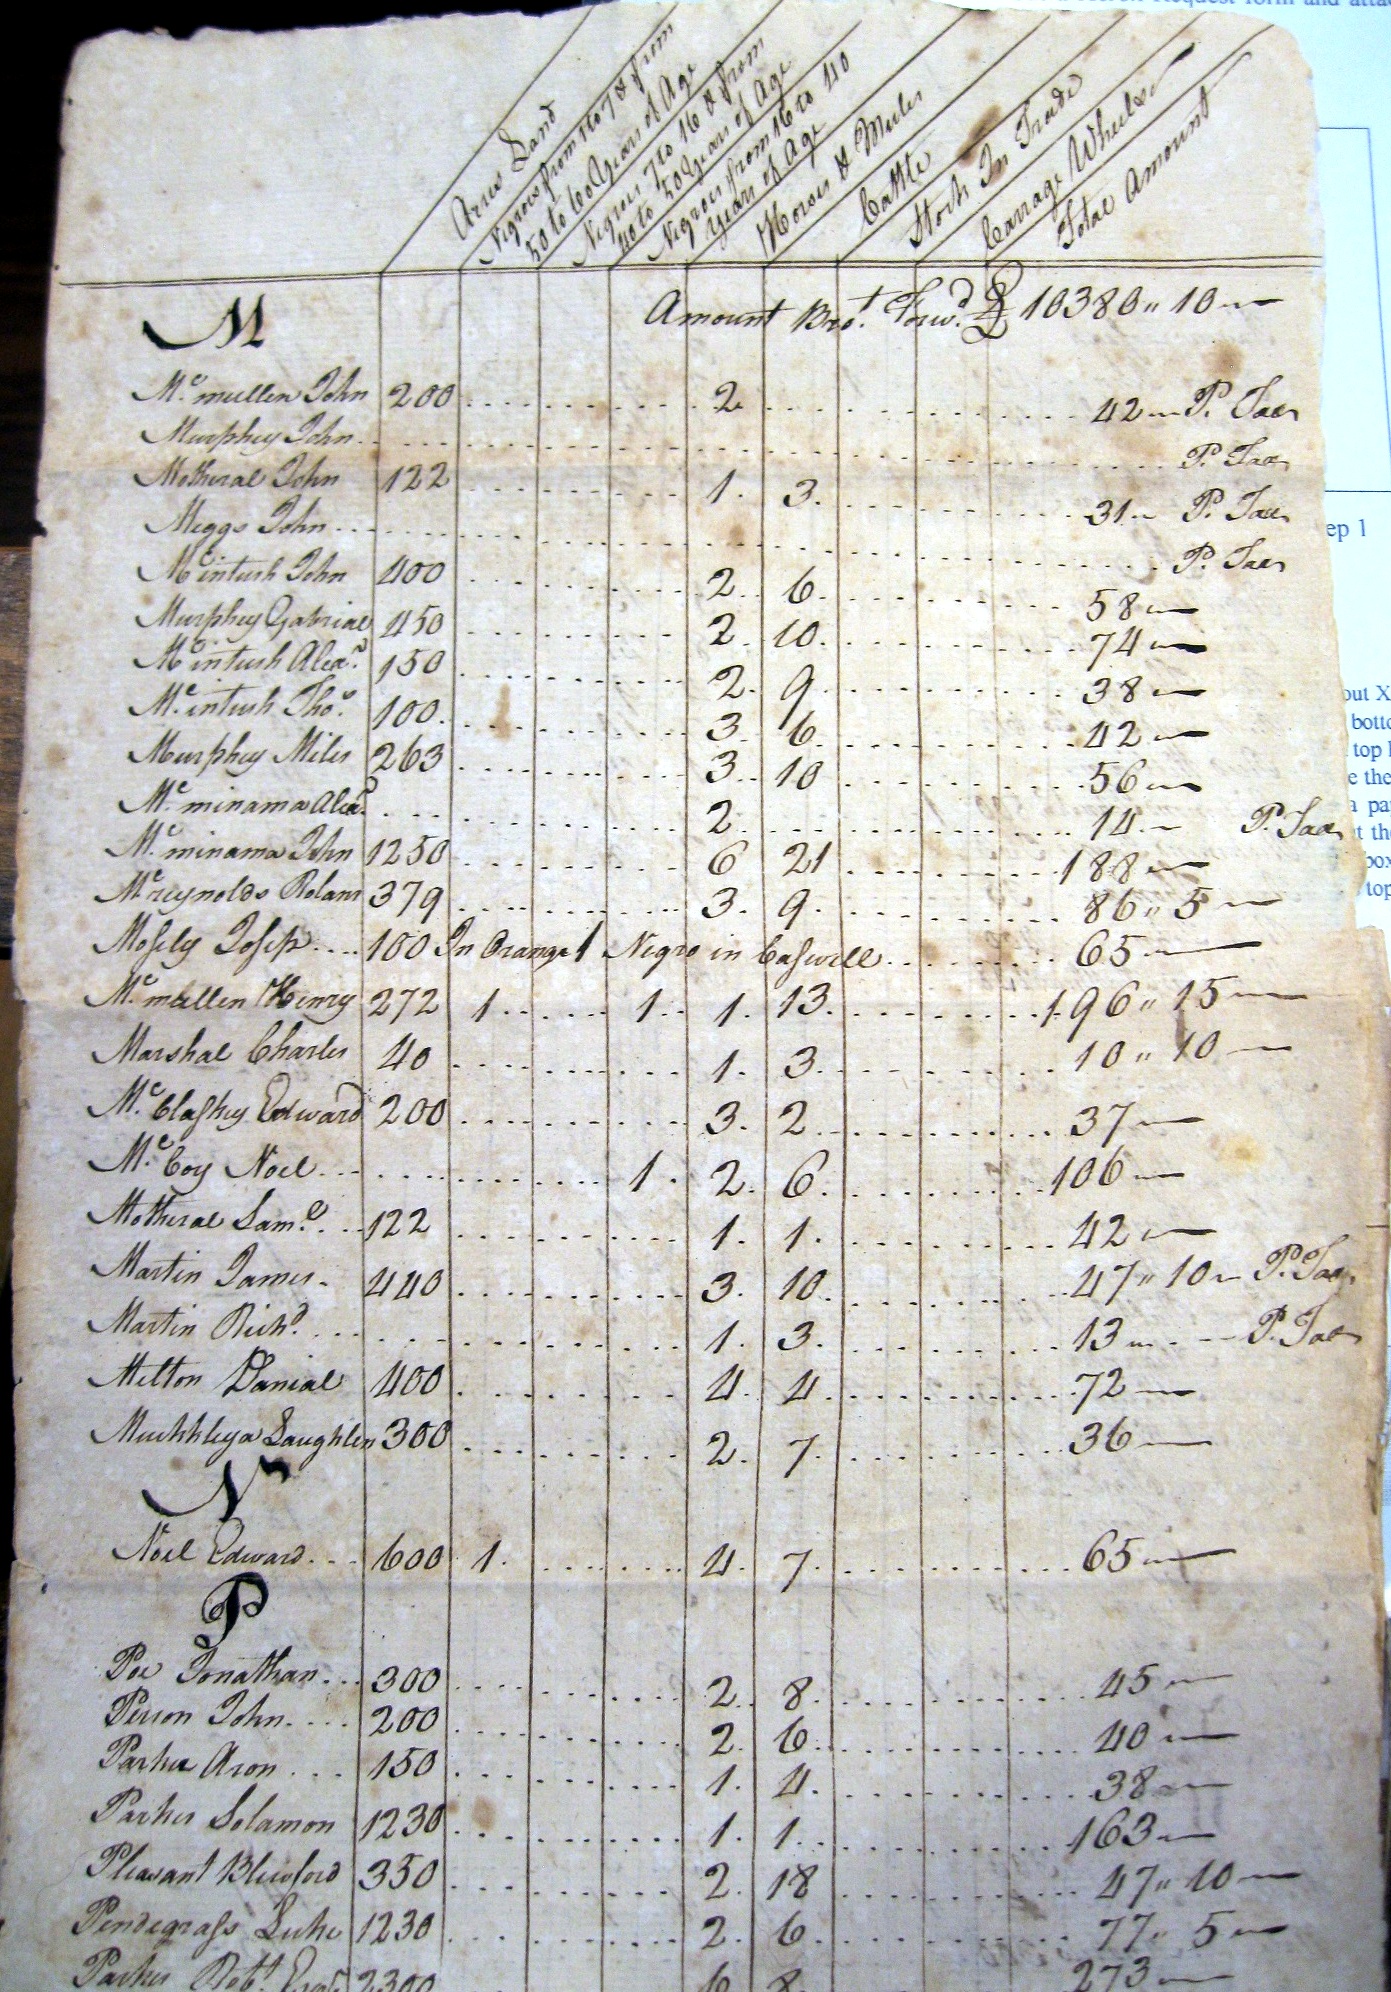 Request form and attac
Acres Land
Negroes from 1 to 7 & from
50 to 60 Years of Age
Negroes 7 to 16 & from
40 to 50 Years of Age
Negroes from 16 to 40
Years of Age
Horses & Mules
Cattle
Stock In Trade
Carrage Wheeles
Total Amount
M Amount Bro.t Forw.d £ 10380 " 10
Mc. mullen John 200 2 42 P. Tax
Murphey John P. Tax
Motheral John 122 1. 3. 31 P. Tax
Meggs John P. Tax
Mc intush John 400 2 6 58
Murphey Gabriael 450 2 10 74
Mc intush Alexr. 150 2 9 38
Mc. intush Thos. 100 3 6 42
Murphey Miles 263 3 10 56
Mc. minama Alexr. 2 14 P. Tax
Mc. minama John 1250 6 21 188
Mc reynolds Rolam 379 3 9 86 " 5
Mosely Joseph 100 In Orange 1 Negro in Caswell 65
Mc. mullen Henry 272 1 1 1. 13 196 " 15
Marshal Charles 40 1. 3 10 " 10
Mc. Claskey Edward 200 3. 2 37
Mc. Coy Noel 1. 2. 6. 106
Motheral Saml. 122 1. 1. 42
Martin James 440 3. 10 47 " 10 P. Tax
Martin Richd. 1. 3. 13 P. Tax
Melton Danial 400 4. 4. 72
Laughlen 300 2. 7. 36
N
Noel Edward 600 1. 4. 7. 65
P
Poe Jonathan 300 2. 8. 45
Person John 200 2. 6 40
Parker Aron 150 1. 4. 38
Parker Solamon 1230 1. 1. 163
Pleasant Blewford 350 2. 18 47 " 10
Pendegrass Luke 1230 2. 6. 77 " 5
Parker Robt. Esqr. 2300 6 8 273
ep 1
out X
botto
top l
e the
a pa
t the
box
top